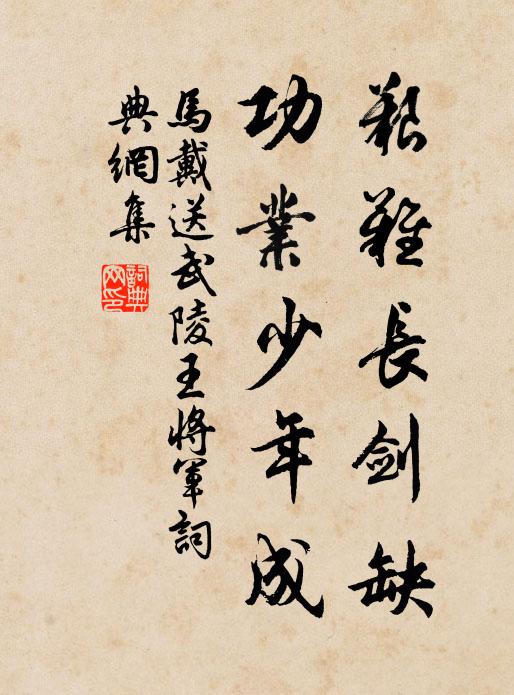 艱難長剑缺
功業少年成
馬戴送武陵王将軍詞
典網集
詞典網印